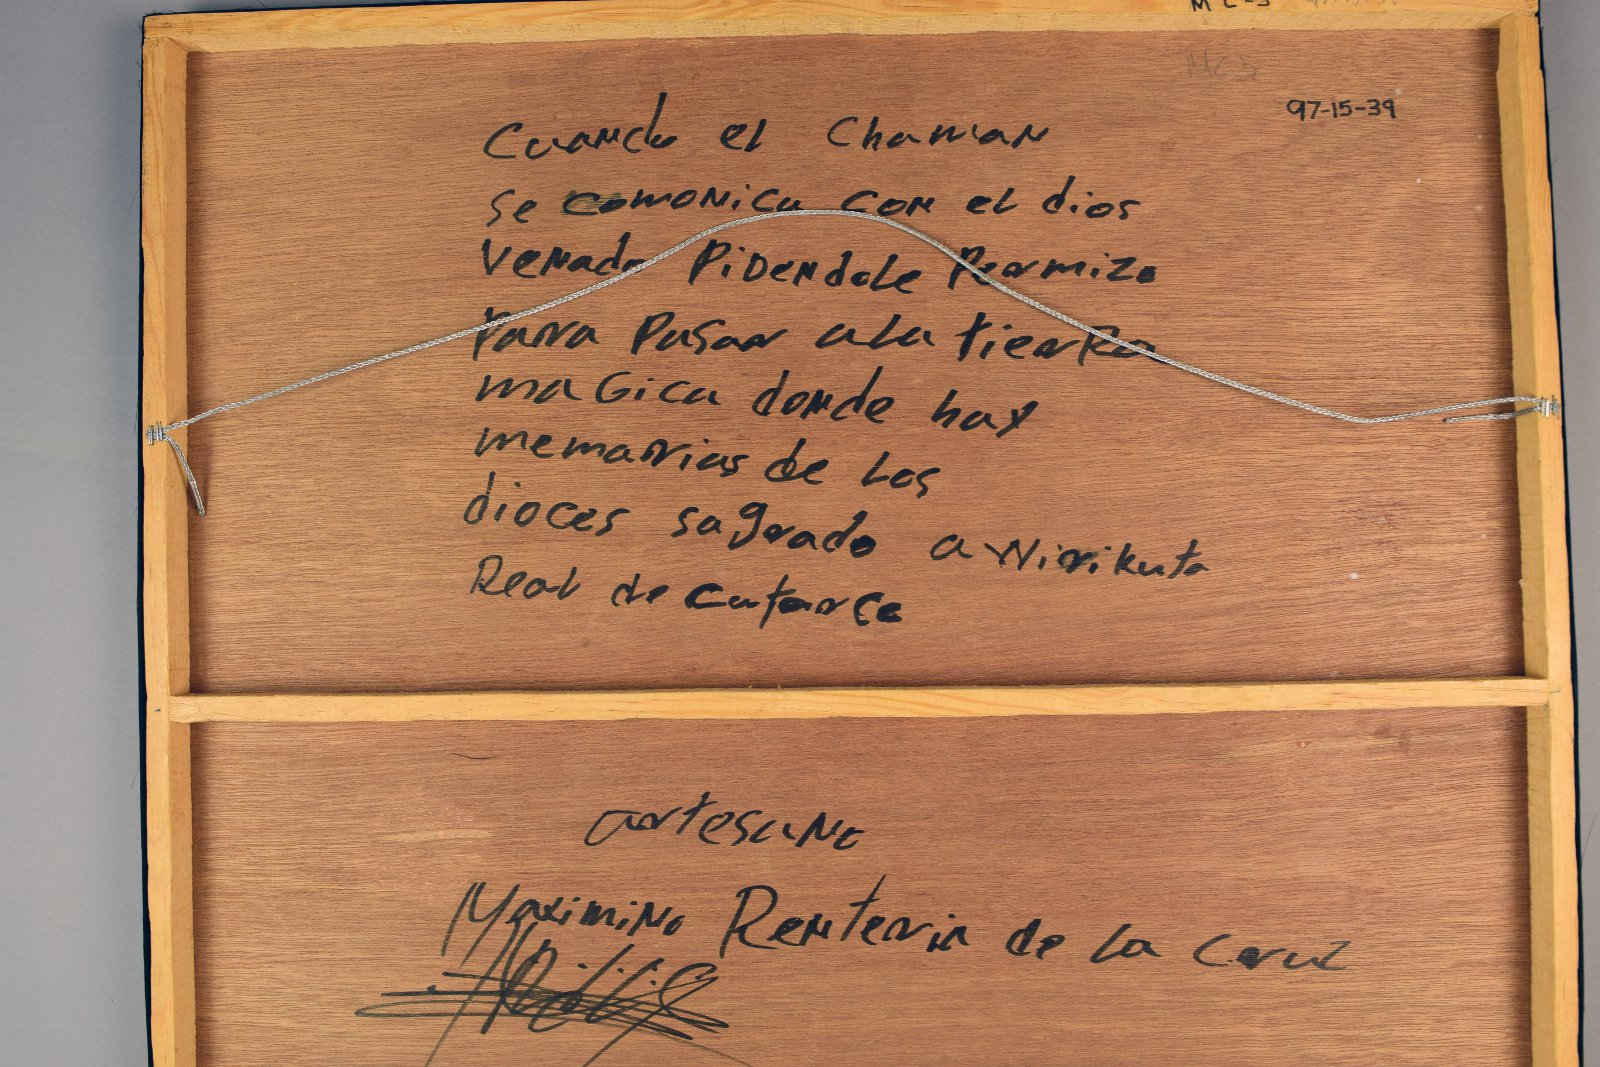 MC-5
MC5
97-15-39
Cuando el Chaman
se comonica con el dios
venado Pidendole Permizo
Para Pasar a la tierra
magica donde hay
memorias de los
dioces sagrado a Wirikuta
Real de Catorce
artesano
Maximino Renteria de la Cruz